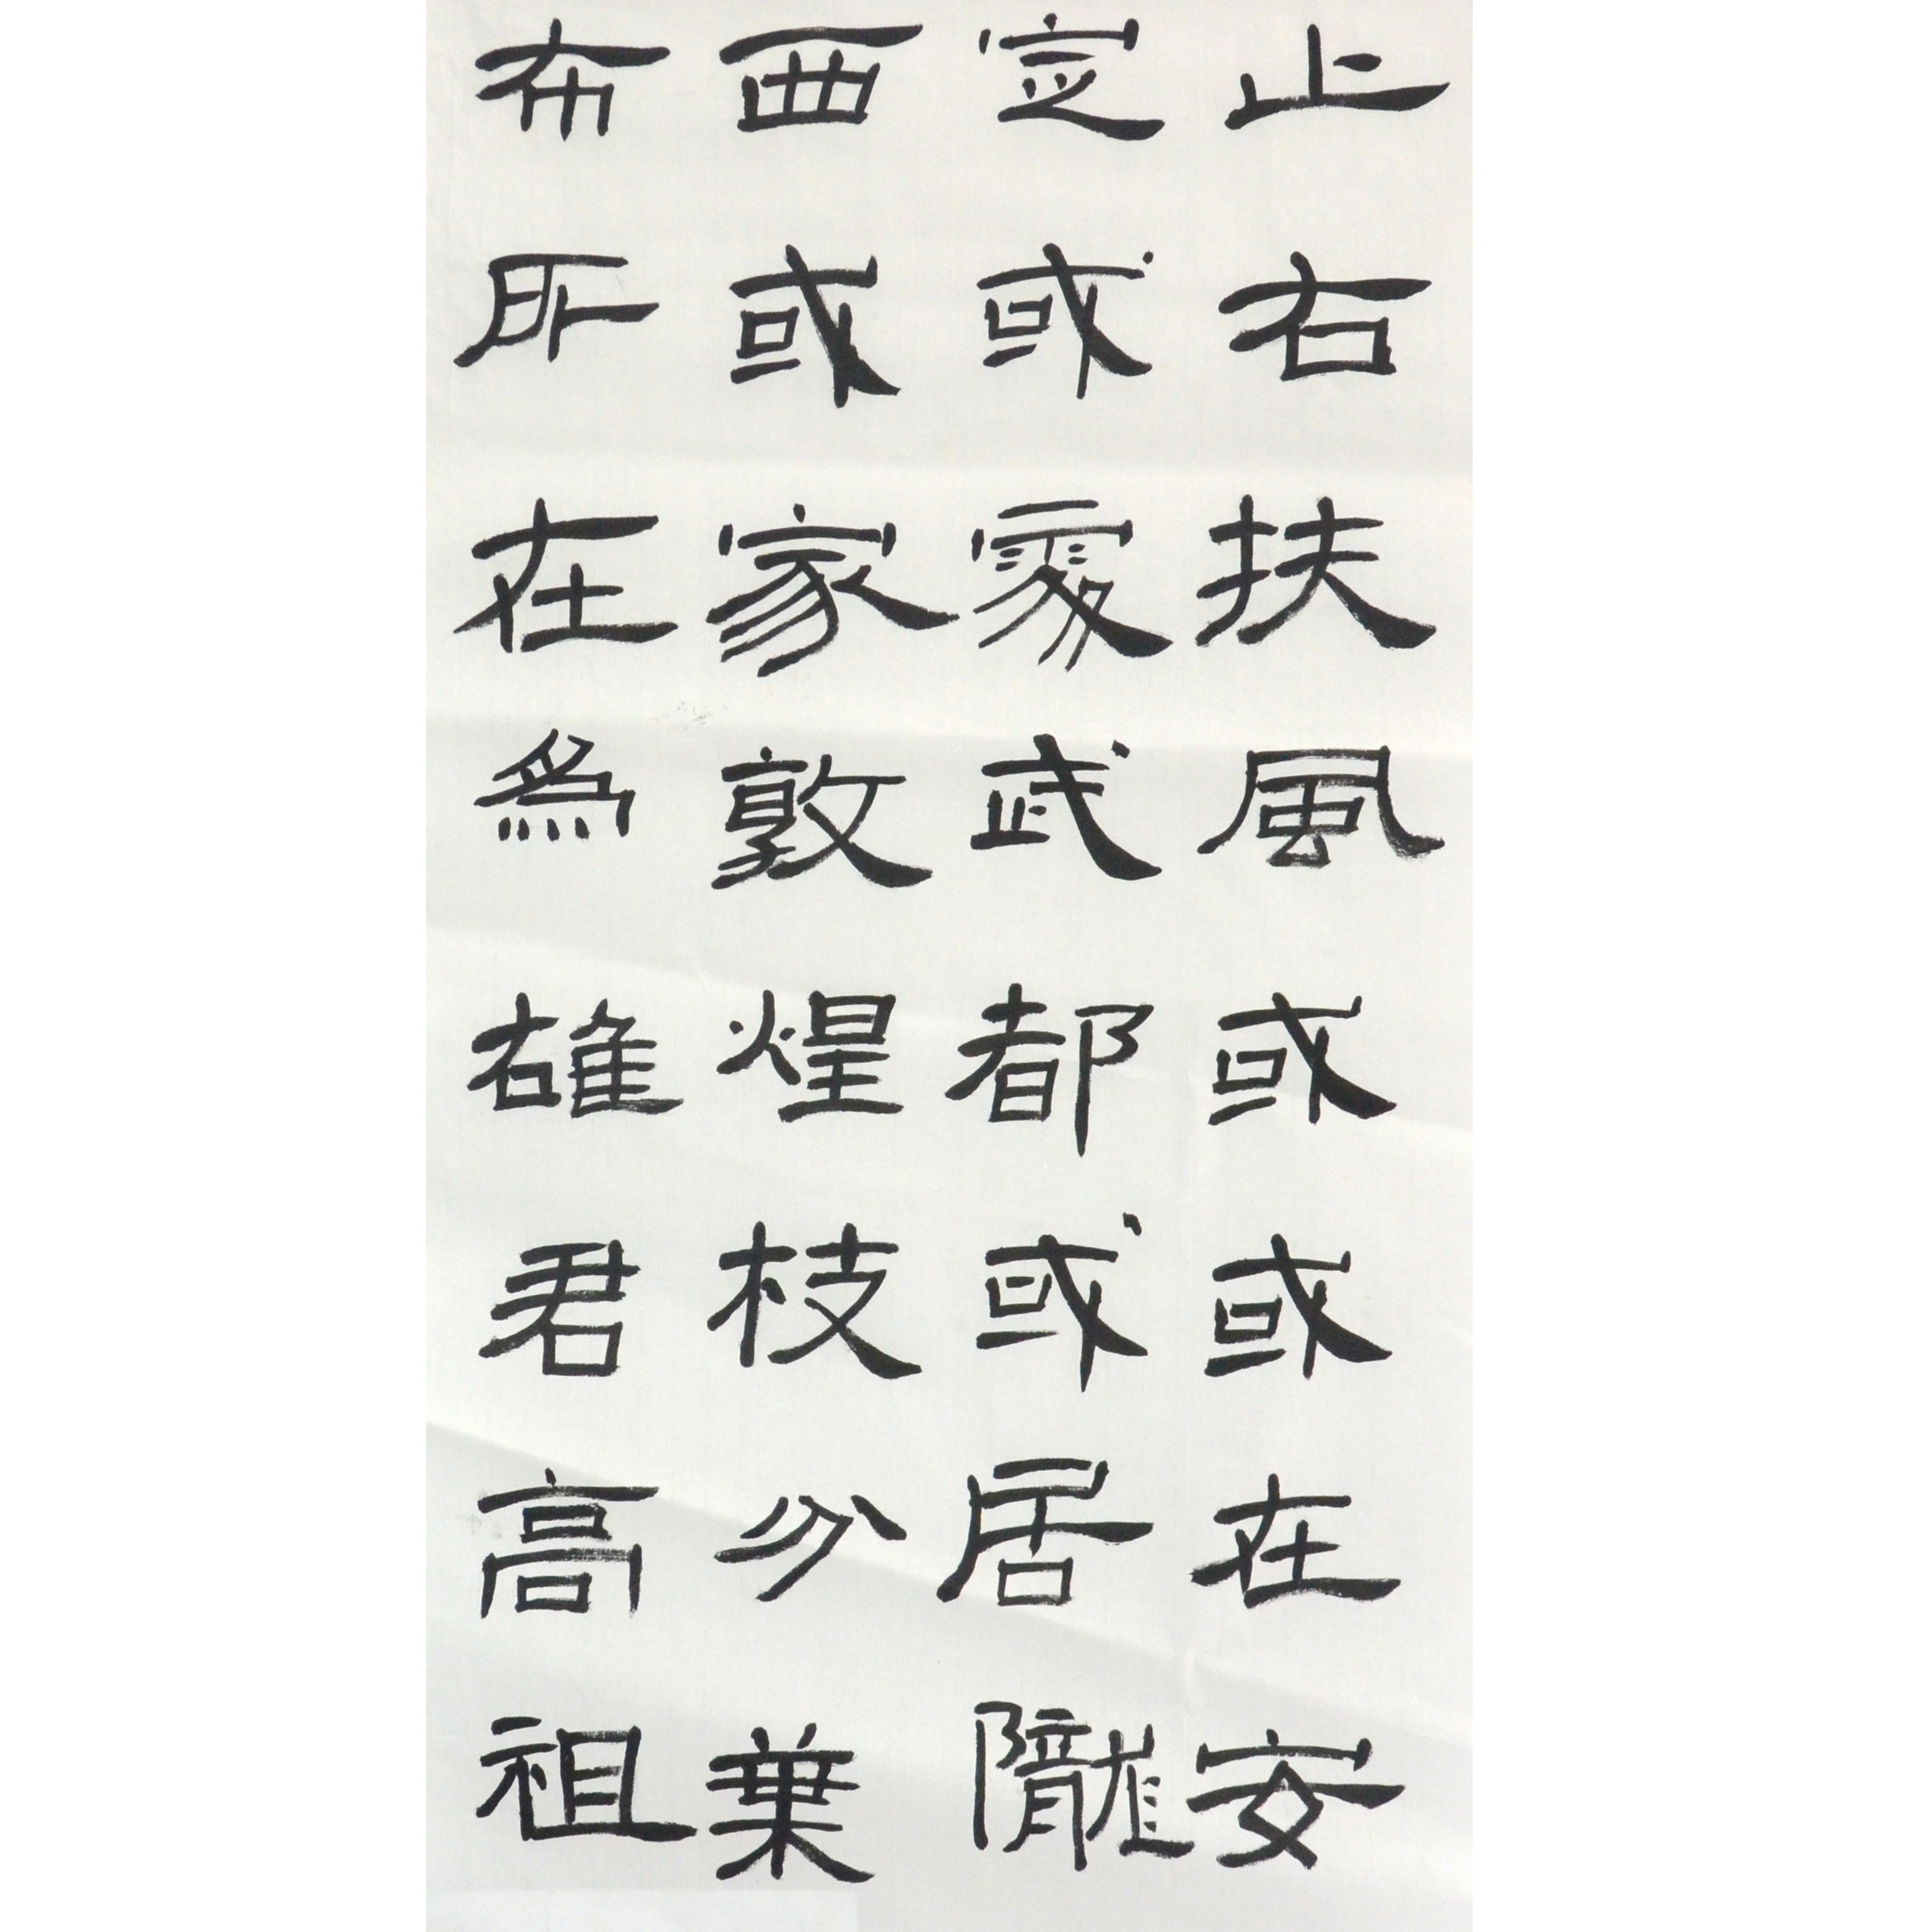 止右扶風或或在安
定或處武都或居隴
西或家敦煌枝分葉
布所在為雄君高祖